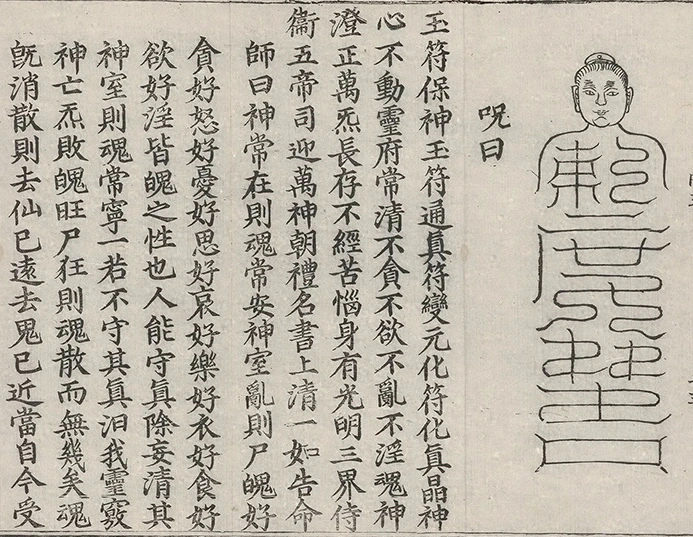 呪曰
玉符保神玉符通眞符變元化符化眞晶神
心不動靈府常清不貪不欲不亂不淫魂神
澄正萬炁長存不經苦惱身有光明三界侍
衞五帝司迎萬神朝禮名書上清一如告命
師曰神常在則魂常安神室亂則尸魄好
貪好怒好憂好思好哀好樂好衣好食好
欲好淫皆魄之性也人能守眞除妄清其
神室則魂常寧一若不守其眞汨我靈竅
神亡炁敗魄旺尸狂則魂散而無幾矣魂
旣消散則去仙已遠去鬼已近當自今受